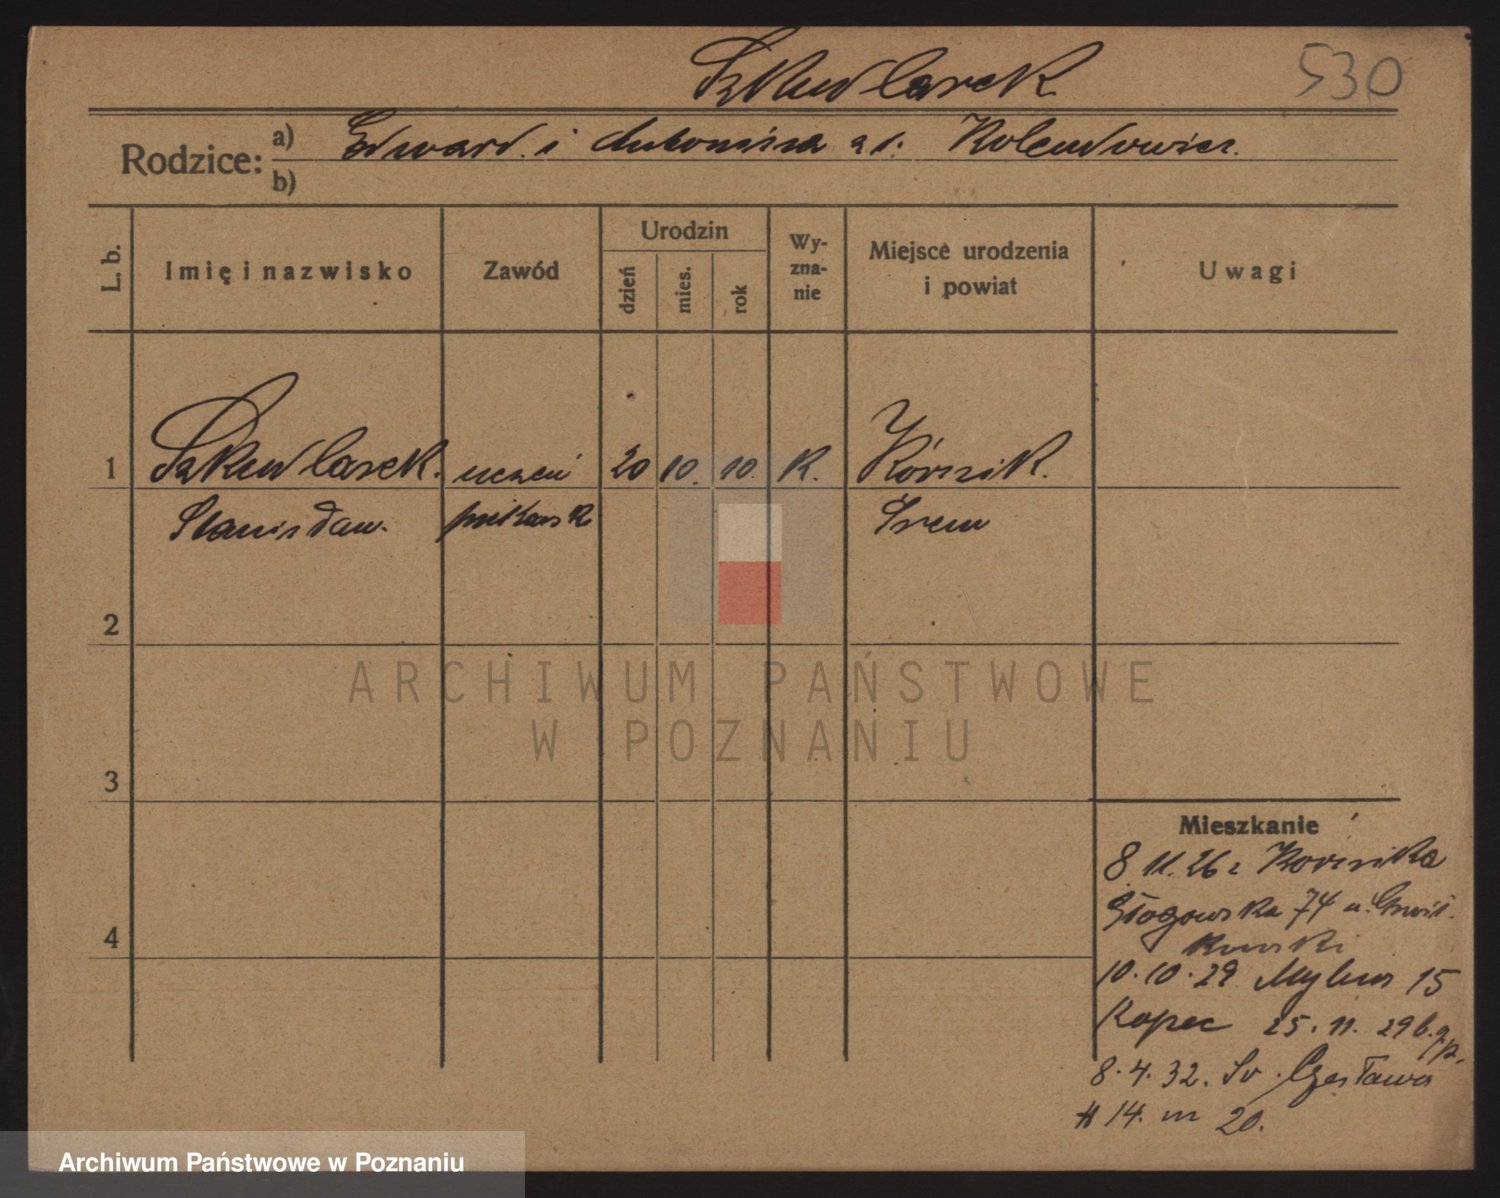 Szkudlarek 530
Rodzice: a) Edward i Antonina z d. Kolendowicz.
b)
L. b. Imię i nazwisko Zawód Urodzin dzień mies. rok Wy-zna-nie Miejsce urodzenia i powiat Uwagi
1 Szkudlarek. uczeń 20 10. 10. K. Kórnik.
Stanisław. piekarsk Śrem
2
ARCHIWUM PAŃSTWOWE
W POZNANIU
3
Mieszkanie
8 11. 26 z Kórnika
Głogowska 74 u.
4
10. 10. 29 15
Kopec 25. 11. 29
8. 4. 32. Św. Czesława
14. m 20.
Archiwum Państwowe w Poznaniu